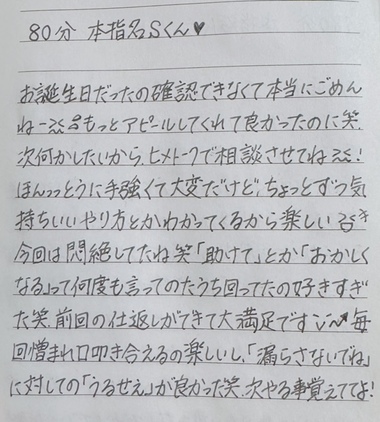 80分 本指名Sくん♥
お誕生日だったの確認できなくて本当にごめん
ねーもっとアピールしてくれて良かったのに笑
次何かしたいから、ヒメトークで相談させてね!
ほんっっとうに手強くて大変だけど、ちょっとずつ気
持ちいいやり方とかわかってくるから楽しい
今回は悶絶してたね笑「助けて」とか「おかしく
なる」って何度も言ってのたうち回ってたの好きすぎ
た笑.前回の仕返しができて大満足です 毎
回憎まれ口叩き合えるの楽しいし、「漏らさないでね」
に対しての「うるせえ」が良かった笑.次やる事覚えててよ!